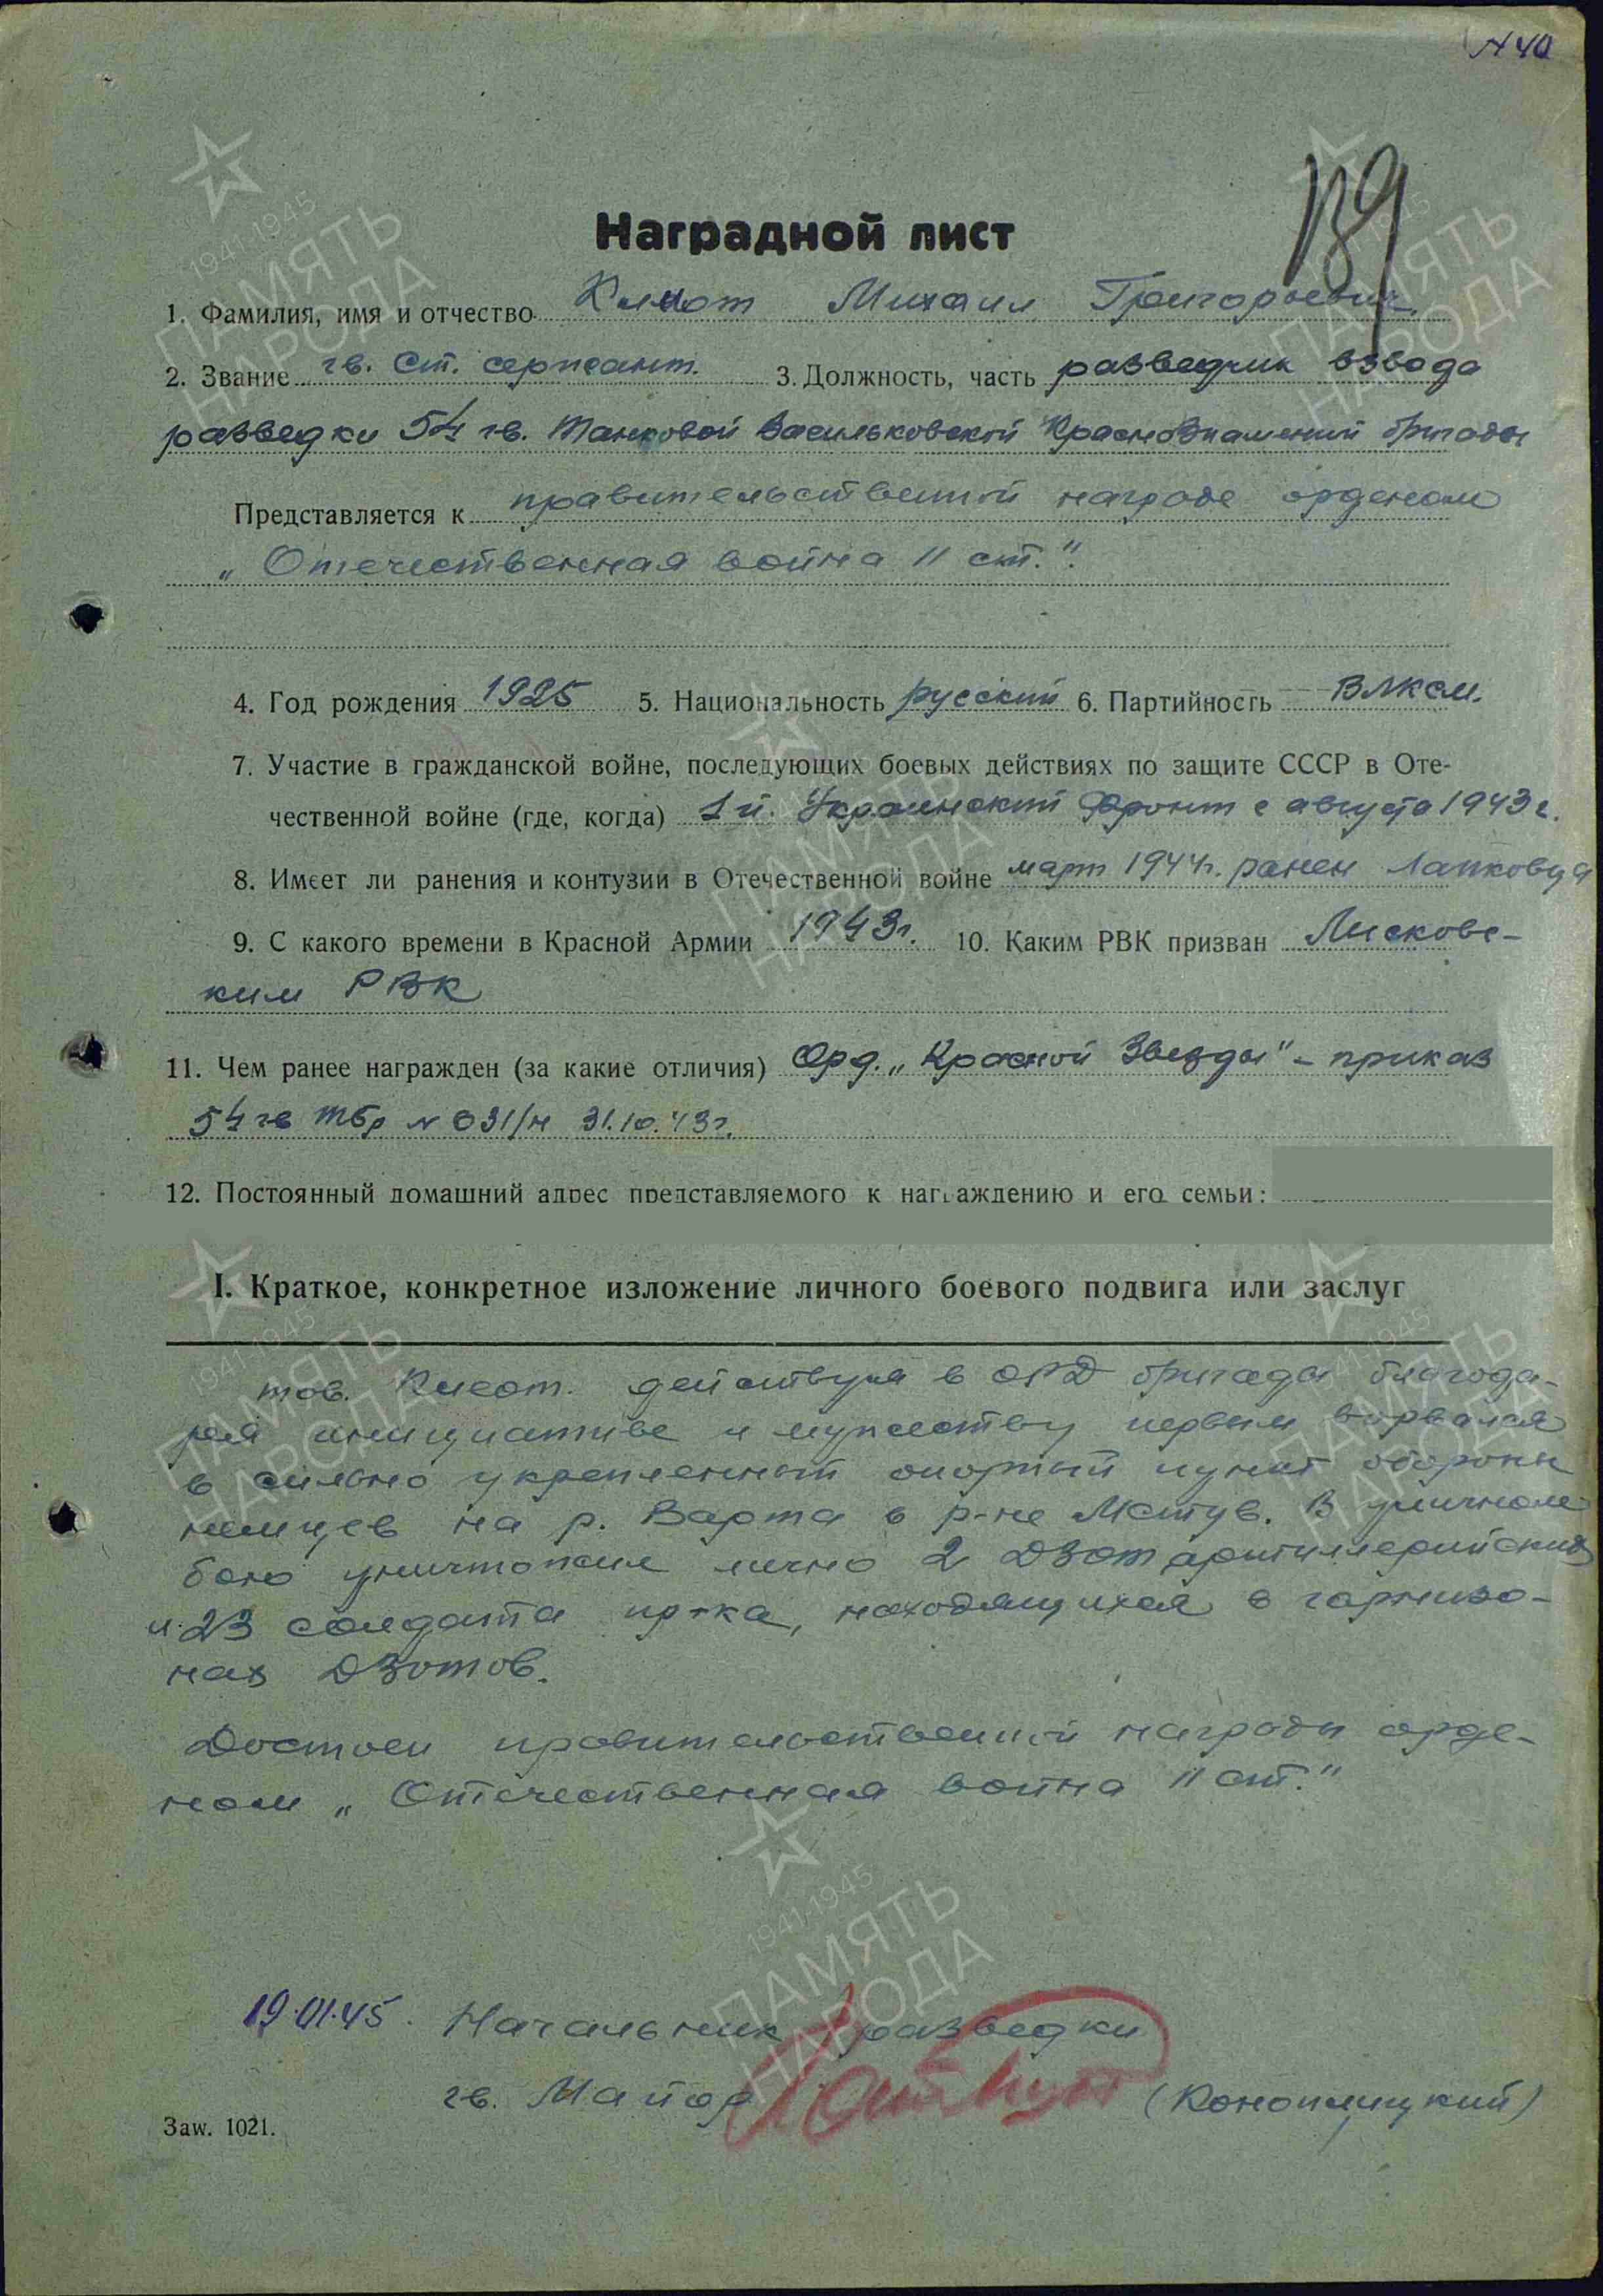 N 40
Наградной лист
1. Фамилия, имя и отчество Михаил Григорьевич
2. Звание гв. Ст. сержант. 3. Должность, часть разведчик взвода
разведки 54 гв. Танковой Васильковской Краснознаменной бригады
Представляется к правительственной награде орденом
„Отечественная война II ст.".
4. Год рождения 1925 5. Национальность русский 6. Партийность ВЛКСМ.
7. Участие в гражданской войне, последующих боевых действиях по защите СССР в Оте-
чественной войне (где, когда) 1й. Украинский Фронт с августа 1943 г.
8. Имеет ли ранения и контузии в Отечественной войне март 1944г. ранен
9. С какого времени в Красной Армии 1943г. 10. Каким РВК призван Лисковс-
ким РВК
11. Чем ранее награжден (за какие отличия) Орд. „Красной Звезды" - приказ
54 гв тбр N 031/н 31.10.43г.
12. Постоянный домашний адрес представляемого к награждению и его семьи:
I. Краткое, конкретное изложение личного боевого подвига или заслуг
тов. действуя в ОРД бригады благода-
ря инициативе и мужеству первым ворвался
в сильно укрепленный опорный пункт обороны
немцев на р. Варта в р-не Мстув. В уличном
бою уничтожил лично 2 ДЗОТ артиллерийских
и 23 солдата пр-ка, находящихся в гарнизо-
нах ДЗотов.
Достоин правительственной награды орде-
ном „Отечественная война II ст."
19.01.45. Начальник разведки
гв. Майор (Коноплицкий)
Заw. 1021.
1941-1945
ПАМЯТЬ
НАРОДА
1941-1945
ПАМЯТЬ
НАРОДА
ПАМЯТЬ
НАРОДА
1941-1945
ПАМЯТЬ
НАРОДА
1941-1945
ПАМЯТЬ
НАРОДА
1941-1945
ПАМЯТЬ
НАРОДА